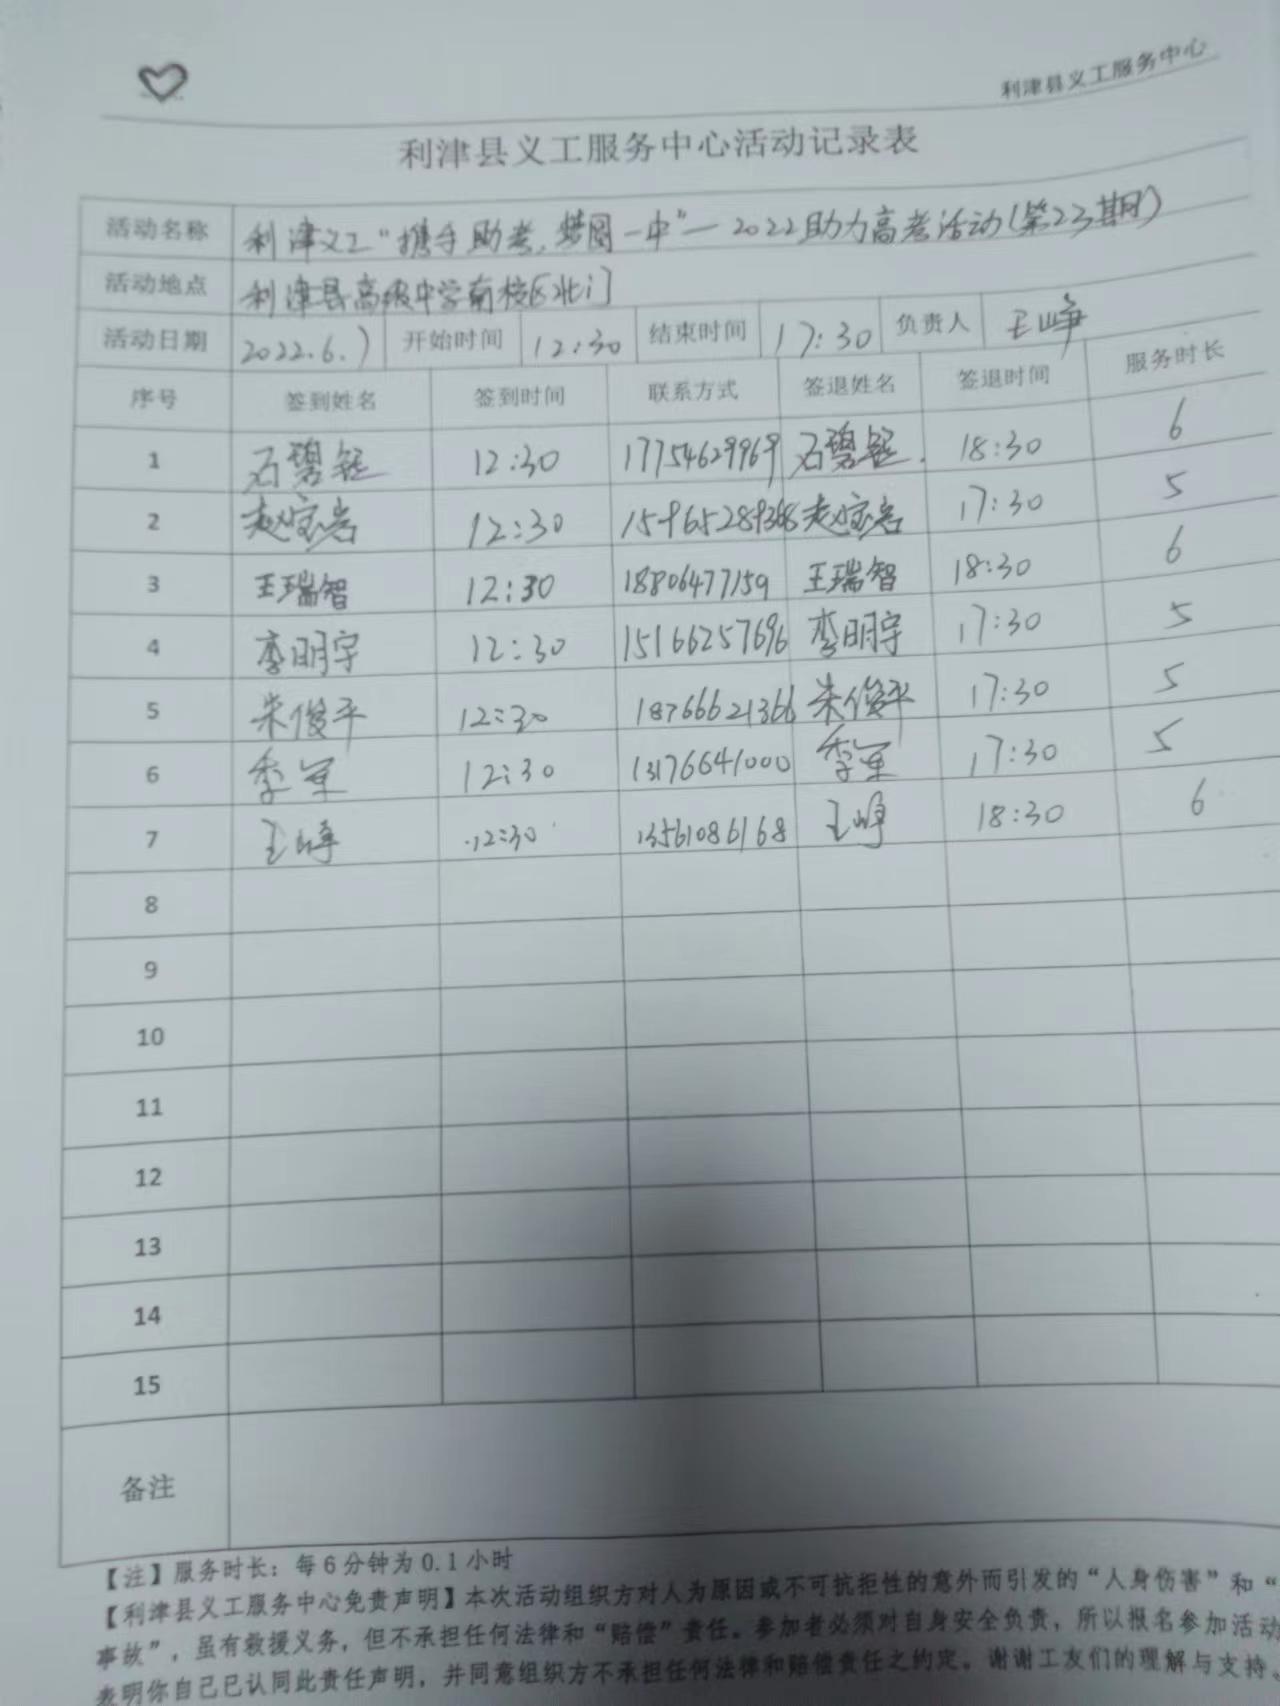 利津县义工服务中心
利津县义工服务中心活动记录表
活动名称 利津义工“携手助考,梦圆一中”—2022助力高考活动(第23期)
活动地点 利津县高级中学南校区北门
活动日期 2022.6.7 开始时间 12:30 结束时间 17:30 负责人 王峥
序号 签到姓名 签到时间 联系方式 签退姓名 签退时间 服务时长
1 石碧钰 12:30 17754629969 石碧钰. 18:30 6
2 赵宝岩 12:30 15965289368 赵宝岩 17:30 5
3 王瑞智 12:30 18806477159 王瑞智 18:30 6
4 李明宇 12:30 15166257696 李明宇 17:30 5
5 朱俊平 12:30 18766621366 朱俊平 17:30 5
6 季军 12:30 13176641000 季军 17:30 5
7 王峥 12:30 13561086168 王峥 18:30 6
8
9
10
11
12
13
14
15
备注
【注】服务时长：每6分钟为0.1小时
【利津县义工服务中心免责声明】本次活动组织方对人为原因或不可抗拒性的意外而引发的“人身伤害”和“
事故”，虽有救援义务，但不承担任何法律和“赔偿”责任。参加者必须对自身安全负责，所以报名参加活动
表明你自己已认同此责任声明，并同意组织方不承担任何法律和赔偿责任之约定。谢谢工友们的理解与支持。